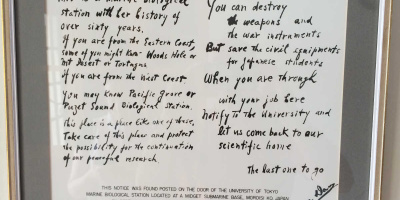 This is a marine biological
station with her history of
over sixty years.
If you are from the Eastern Coast,
some of you might know Woods Hole or
Mt Desert or Tortugas
If you are from the West Coast
You may know Pacific Grove or
Puget Sound Biological Station.
This place is a place like one of these.
Take care of this place and protect
the possibility for the continuation
of our peaceful research
You can destroy
the weapons and
the war instruments
But save the civil equipments
for Japanese students
When you are through
with your job here
Notify to the University and
let us come back to our
scientific home
The last one to go
THIS NOTICE WAS FOUND POSTED ON THE DOOR OF THE UNIVERSITY OF TOKYO
MARINE BIOLOGICAL STATION LOCATED AT A MIDGET SUBMARINE BASE, MOROISI KO JAPAN